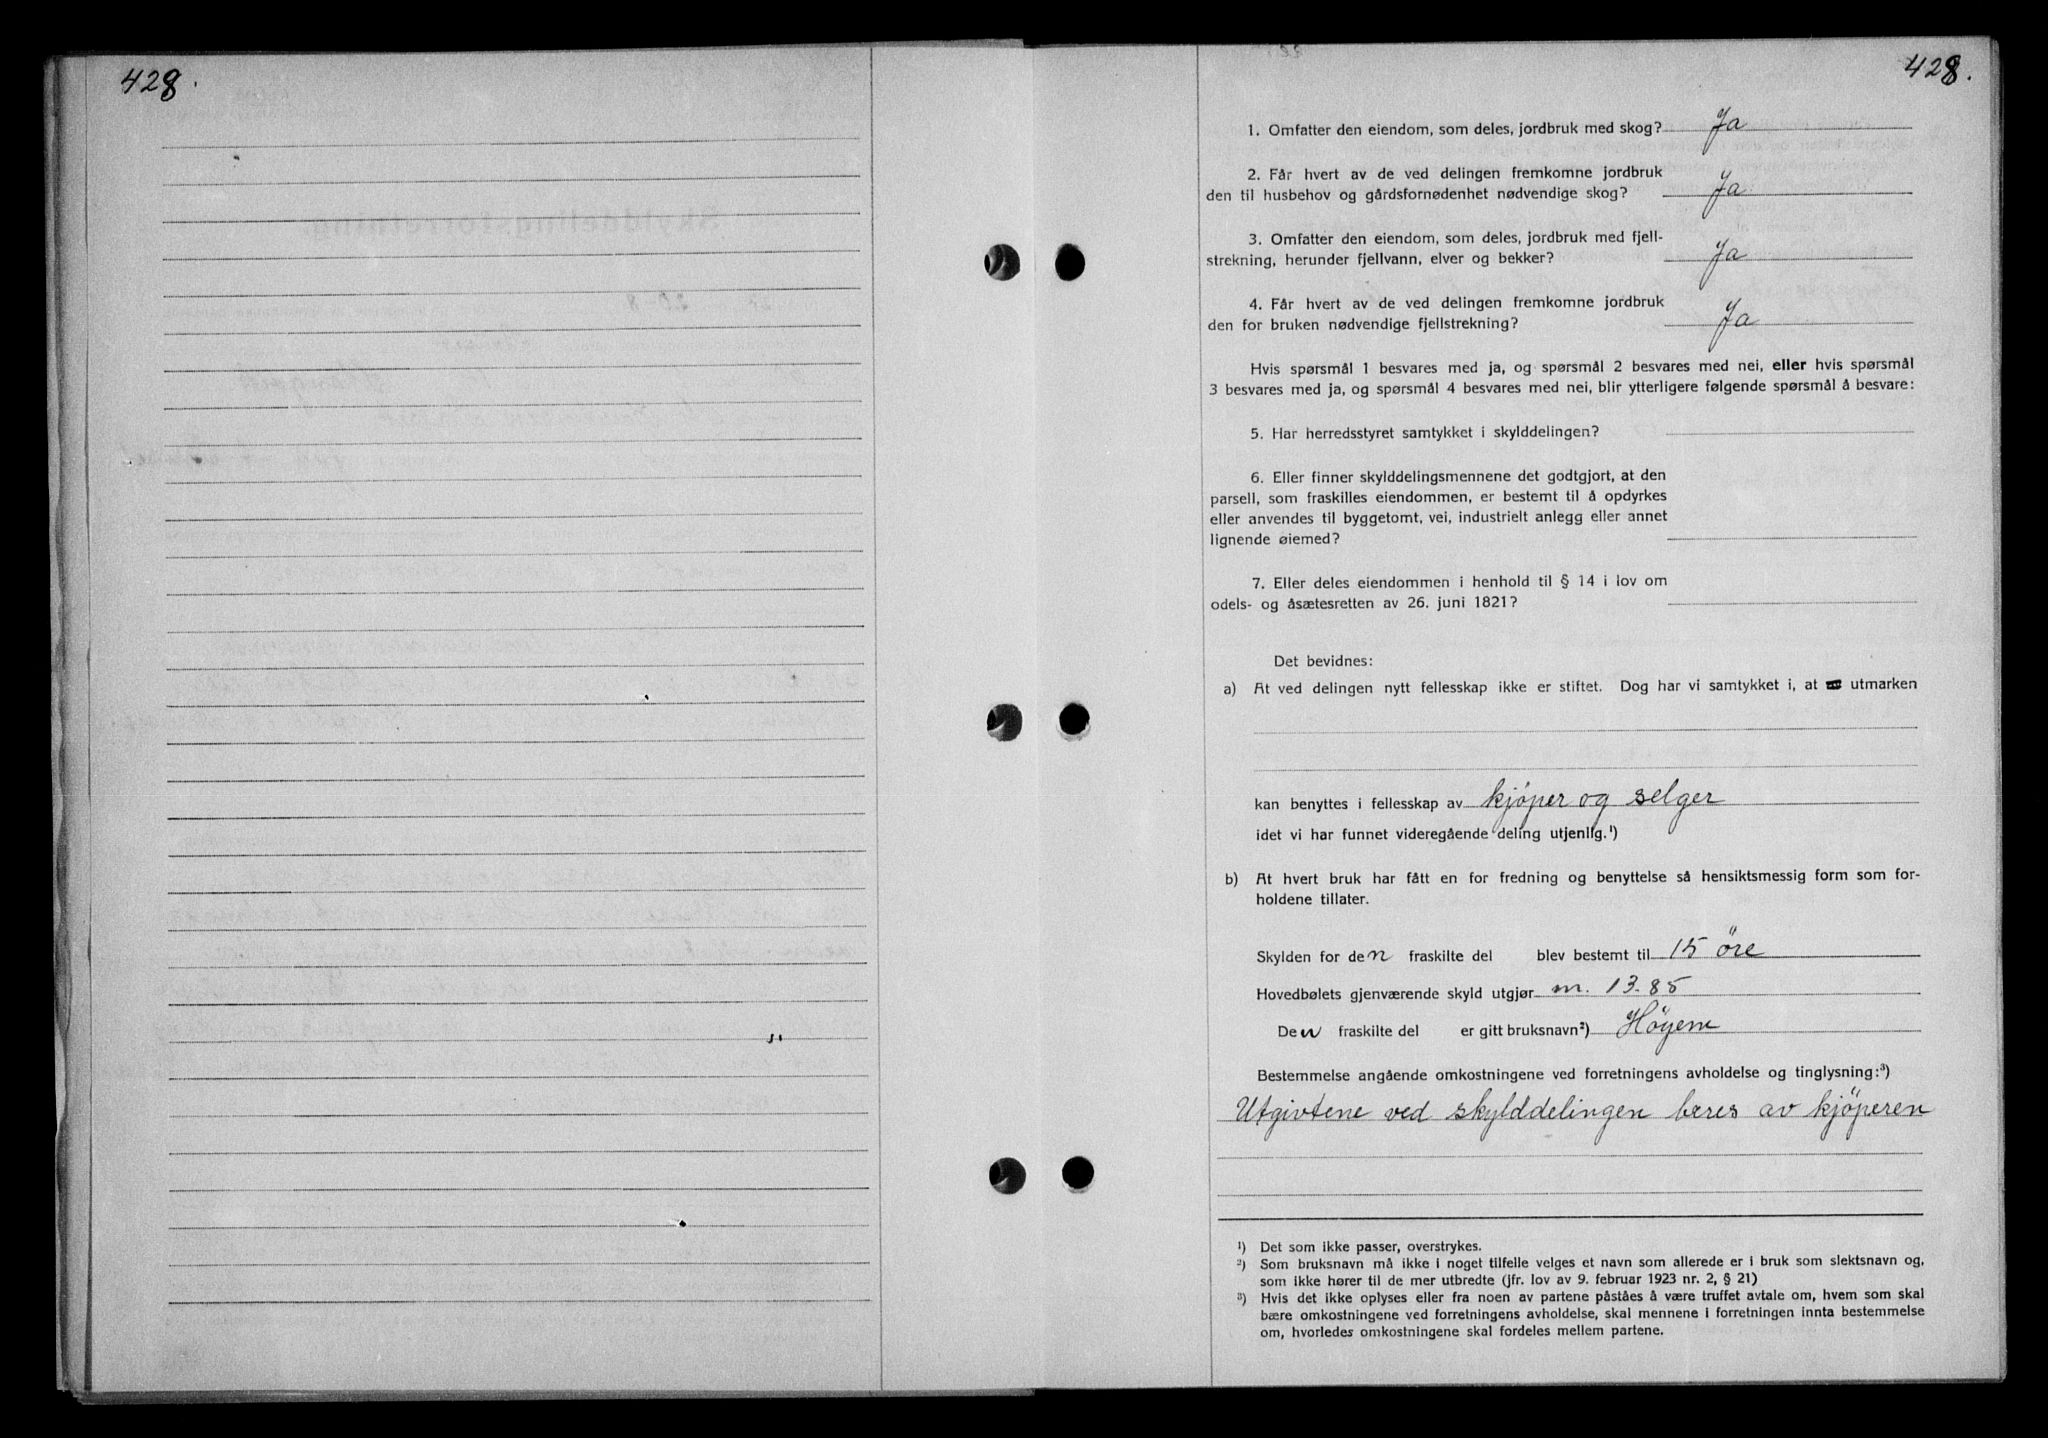 428.
428.
1. Omfatter den eiendom, som deles, jordbruk med skog? Ja
2. Får hvert av de ved delingen fremkomne jordbruk
den til husbehov og gårdsfornødenhet nødvendige skog? Ja
3. Omfatter den eiendom, som deles, jordbruk med fjell-
strekning, herunder fjellvann, elver og bekker? Ja
4. Får hvert av de ved delingen fremkomne jordbruk
den for bruken nødvendige fjellstrekning? Ja
Hvis spørsmål 1 besvares med ja, og spørsmål 2 besvares med nei, eller hvis spørsmål
3 besvares med ja, og spørsmål 4 besvares med nei, blir ytterligere følgende spørsmål å besvare:
5. Har herredsstyret samtykket i skylddelingen?
6. Eller finner skylddelingsmennene det godtgjort, at den
parsell, som fraskilles eiendommen, er bestemt til å opdyrkes
eller anvendes til byggetomt, vei, industrielt anlegg eller annet
lignende øiemed?
7. Eller deles eiendommen i henhold til § 14 i lov om
odels- og åsætesretten av 26. juni 1821?
Det bevidnes:
a) At ved delingen nytt fellesskap ikke er stiftet. Dog har vi samtykket i, at utmarken
kan benyttes i fellesskap av kjøper og selger
idet vi har funnet videregående deling utjenlig.¹)
b) At hvert bruk har fått en for fredning og benyttelse så hensiktsmessig form som for-
holdene tillater.
Skylden for den fraskilte del blev bestemt til 15 öre
Hovedbølets gjenværende skyld utgjør m. 13.85
Den fraskilte del er gitt bruksnavn²) Höyem
Bestemmelse angående omkostningene ved forretningens avholdelse og tinglysning:³)
Utgivtene ved skylddelingen bæres av kjöperen
¹) Det som ikke passer, overstrykes.
²) Som bruksnavn må ikke i noget tilfelle velges et navn som allerede er i bruk som slektsnavn og,
som ikke hører til de mer utbredte (jfr. lov av 9. februar 1923 nr. 2, § 21)
³) Hvis det ikke oplyses eller fra noen av partene påståes å være truffet avtale om, hvem som skal
bære omkostningene ved forretningens avholdelse, skal mennene i forretningen innta bestemmelse
om, hvorledes omkostningene skal fordeles mellem partene.